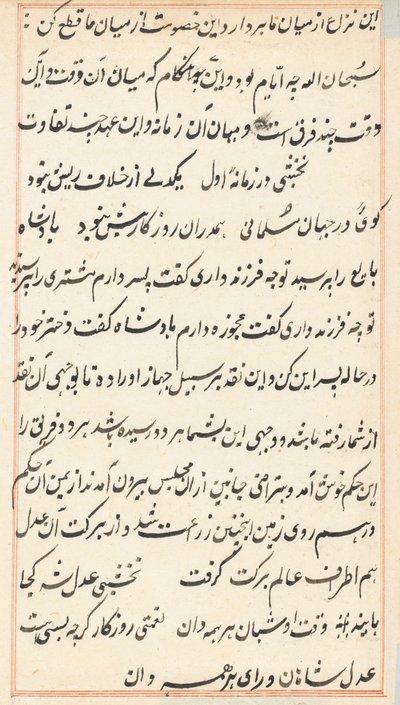 این نزاع از میان ما بردار و این خصومت از میان ما قطع کن
سبحان الله چه ایام بود و این چه هنگام که میان آن وقت و این
وقت چند فرق است و میان آن زمانه و این عهد چند تفاوت
نخشبی در زمانهٔ اول یکدلی از خلاف ریش نبود
کوئی در جهان سلمانی همدران روزگار بیش نبود پادشاه
بایع را پرسید تو چه فرزند داری گفت پسر دارم مشتری را پرسید
تو چه فرزند داری گفت عجوزه دارم پادشاه گفت دختر خود را
در حاله پسر این کن و این نقد بر سبیل جهاز او را ده تا بوجهی آن نقد
از شما رفته باشد و وجهی این بشما هر دو رسیده باشد هر دو فریق را
این حکم خوش آمد و بتراضی جانبین از ان مجلس بیرون آمدند از یمن آن حکم
در همه روی زمین اینچنین زراعت شد و از برکت آن عدل
همه اطراف عالم برکت گرفت نخشبی عدل شه کجا
یابند وقت او شبان هر همه دان نعمتی روزگار گرچه بسی است
عدل شاهان ورای هر همه دان